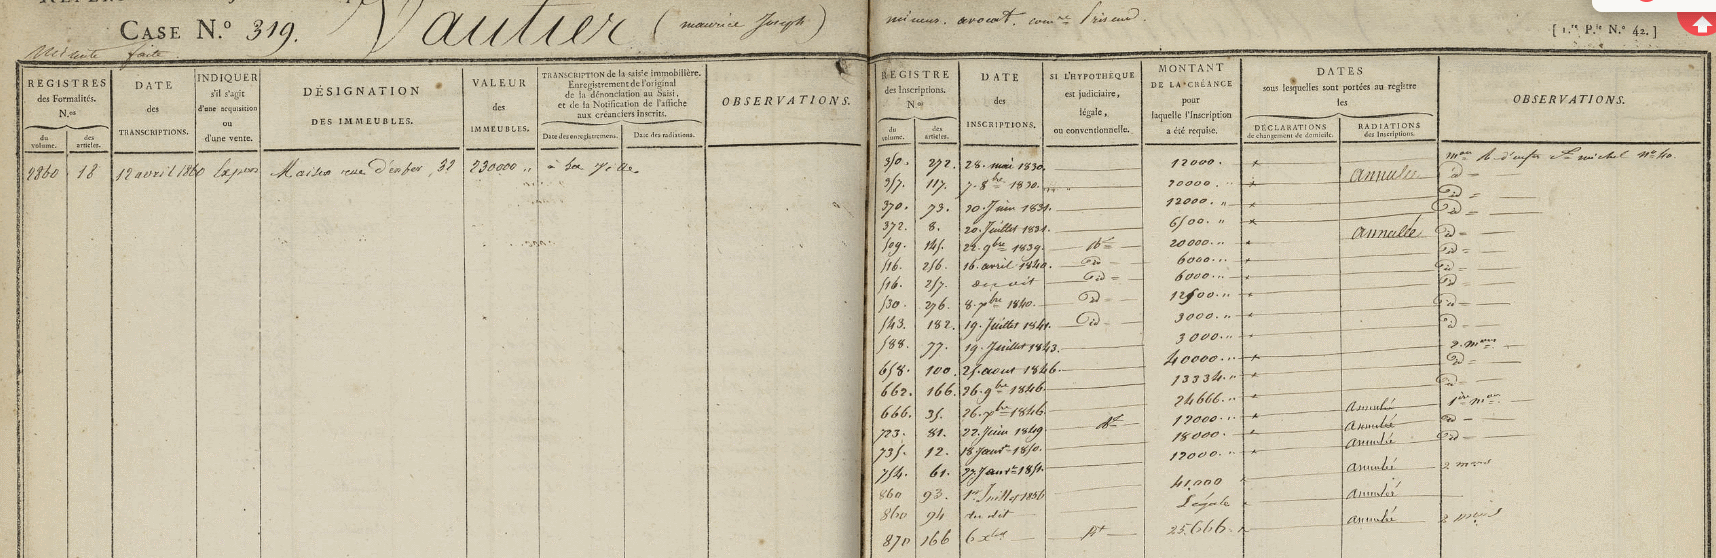 CASE N.° 319. Vautier (maurice Joseph)
mineur. avocat.
[1.re P.ie N.° 42.]
REGISTRES
des Formalités.
N.os
du volume.
des articles.
DATE
des
TRANSCRIPTIONS.
INDIQUER
s'il s'agit
d'une acquisition
ou
d'une vente.
DÉSIGNATION
DES IMMEUBLES.
VALEUR
des
IMMEUBLES.
TRANSCRIPTION de la saisie immobilière.
Enregistrement de l'original
de la dénonciation au Saisi,
et de la Notification de l'affiche
aux créanciers inscrits.
Date des enregistremens.
Date des radiations.
OBSERVATIONS.
2860 18 12 avril 1860 Expon Maison rue d'enfer, 32 230000 „ à la Ville
REGISTRE
des Inscriptions.
N.os
du volume.
des articles.
DATE
des
INSCRIPTIONS.
SI L'HYPOTHÈQUE
est judiciaire,
légale,
ou conventionnelle.
MONTANT
DE LA CRÉANCE
pour
laquelle l'Inscription
a été requise.
DATES
sous lesquelles sont portées au registre
les
DÉCLARATIONS
de changement de domicile.
RADIATIONS
des Inscriptions.
OBSERVATIONS.
350. 272. 28. mai 1830. 12000. mon R. d'enfer St. michel no. 40.
357. 117. 7. 8bre 1830. 20000. annulée d°
370. 73. 20. Juin 1831. 12000. d°
372. 8. 20. Juillet 1831. 6500. d°
509. 145. 22. 9bre 1839. 20000. annullé d°
516. 256. 16. avril 1840. 6000. d°
516. 257. du dit 6000. d°
530. 276. 8. xbre 1840. 12500. d°
543. 182. 19. Juillet 1841. 3000. d°
588. 77. 19. Juillet 1843. 3000. d°
658. 100. 25. aout 1846. 40000. 2. mons
662. 166. 26. 9bre 1846. 13334. d°
666. 35. 26. xbre 1846. 24666. d°
723. 81. 22. Juin 1849. 12000. annulé 1ère mon
735. 12. 18 Janv. 1850. 18000. annulé d°
754. 61. 27 Janv. 1851. 12000. annulé d°
860 93. 1er Juillet 1856 41,000 annulé 2 mons
860 94 du dit Légale annulé
870 166 6 xbre 25,666 annulé